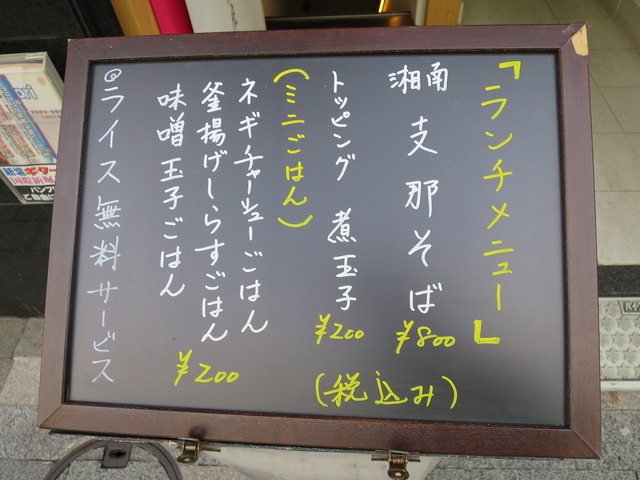 「ランチメニュー」
湘南 支那そば ¥800
トッピング 煮玉子 ¥200
(税込み)
(ミニごはん)
ネギチャーシューごはん
釜揚げしらすごはん
味噌玉子ごはん
¥200
◎ライス無料サービス